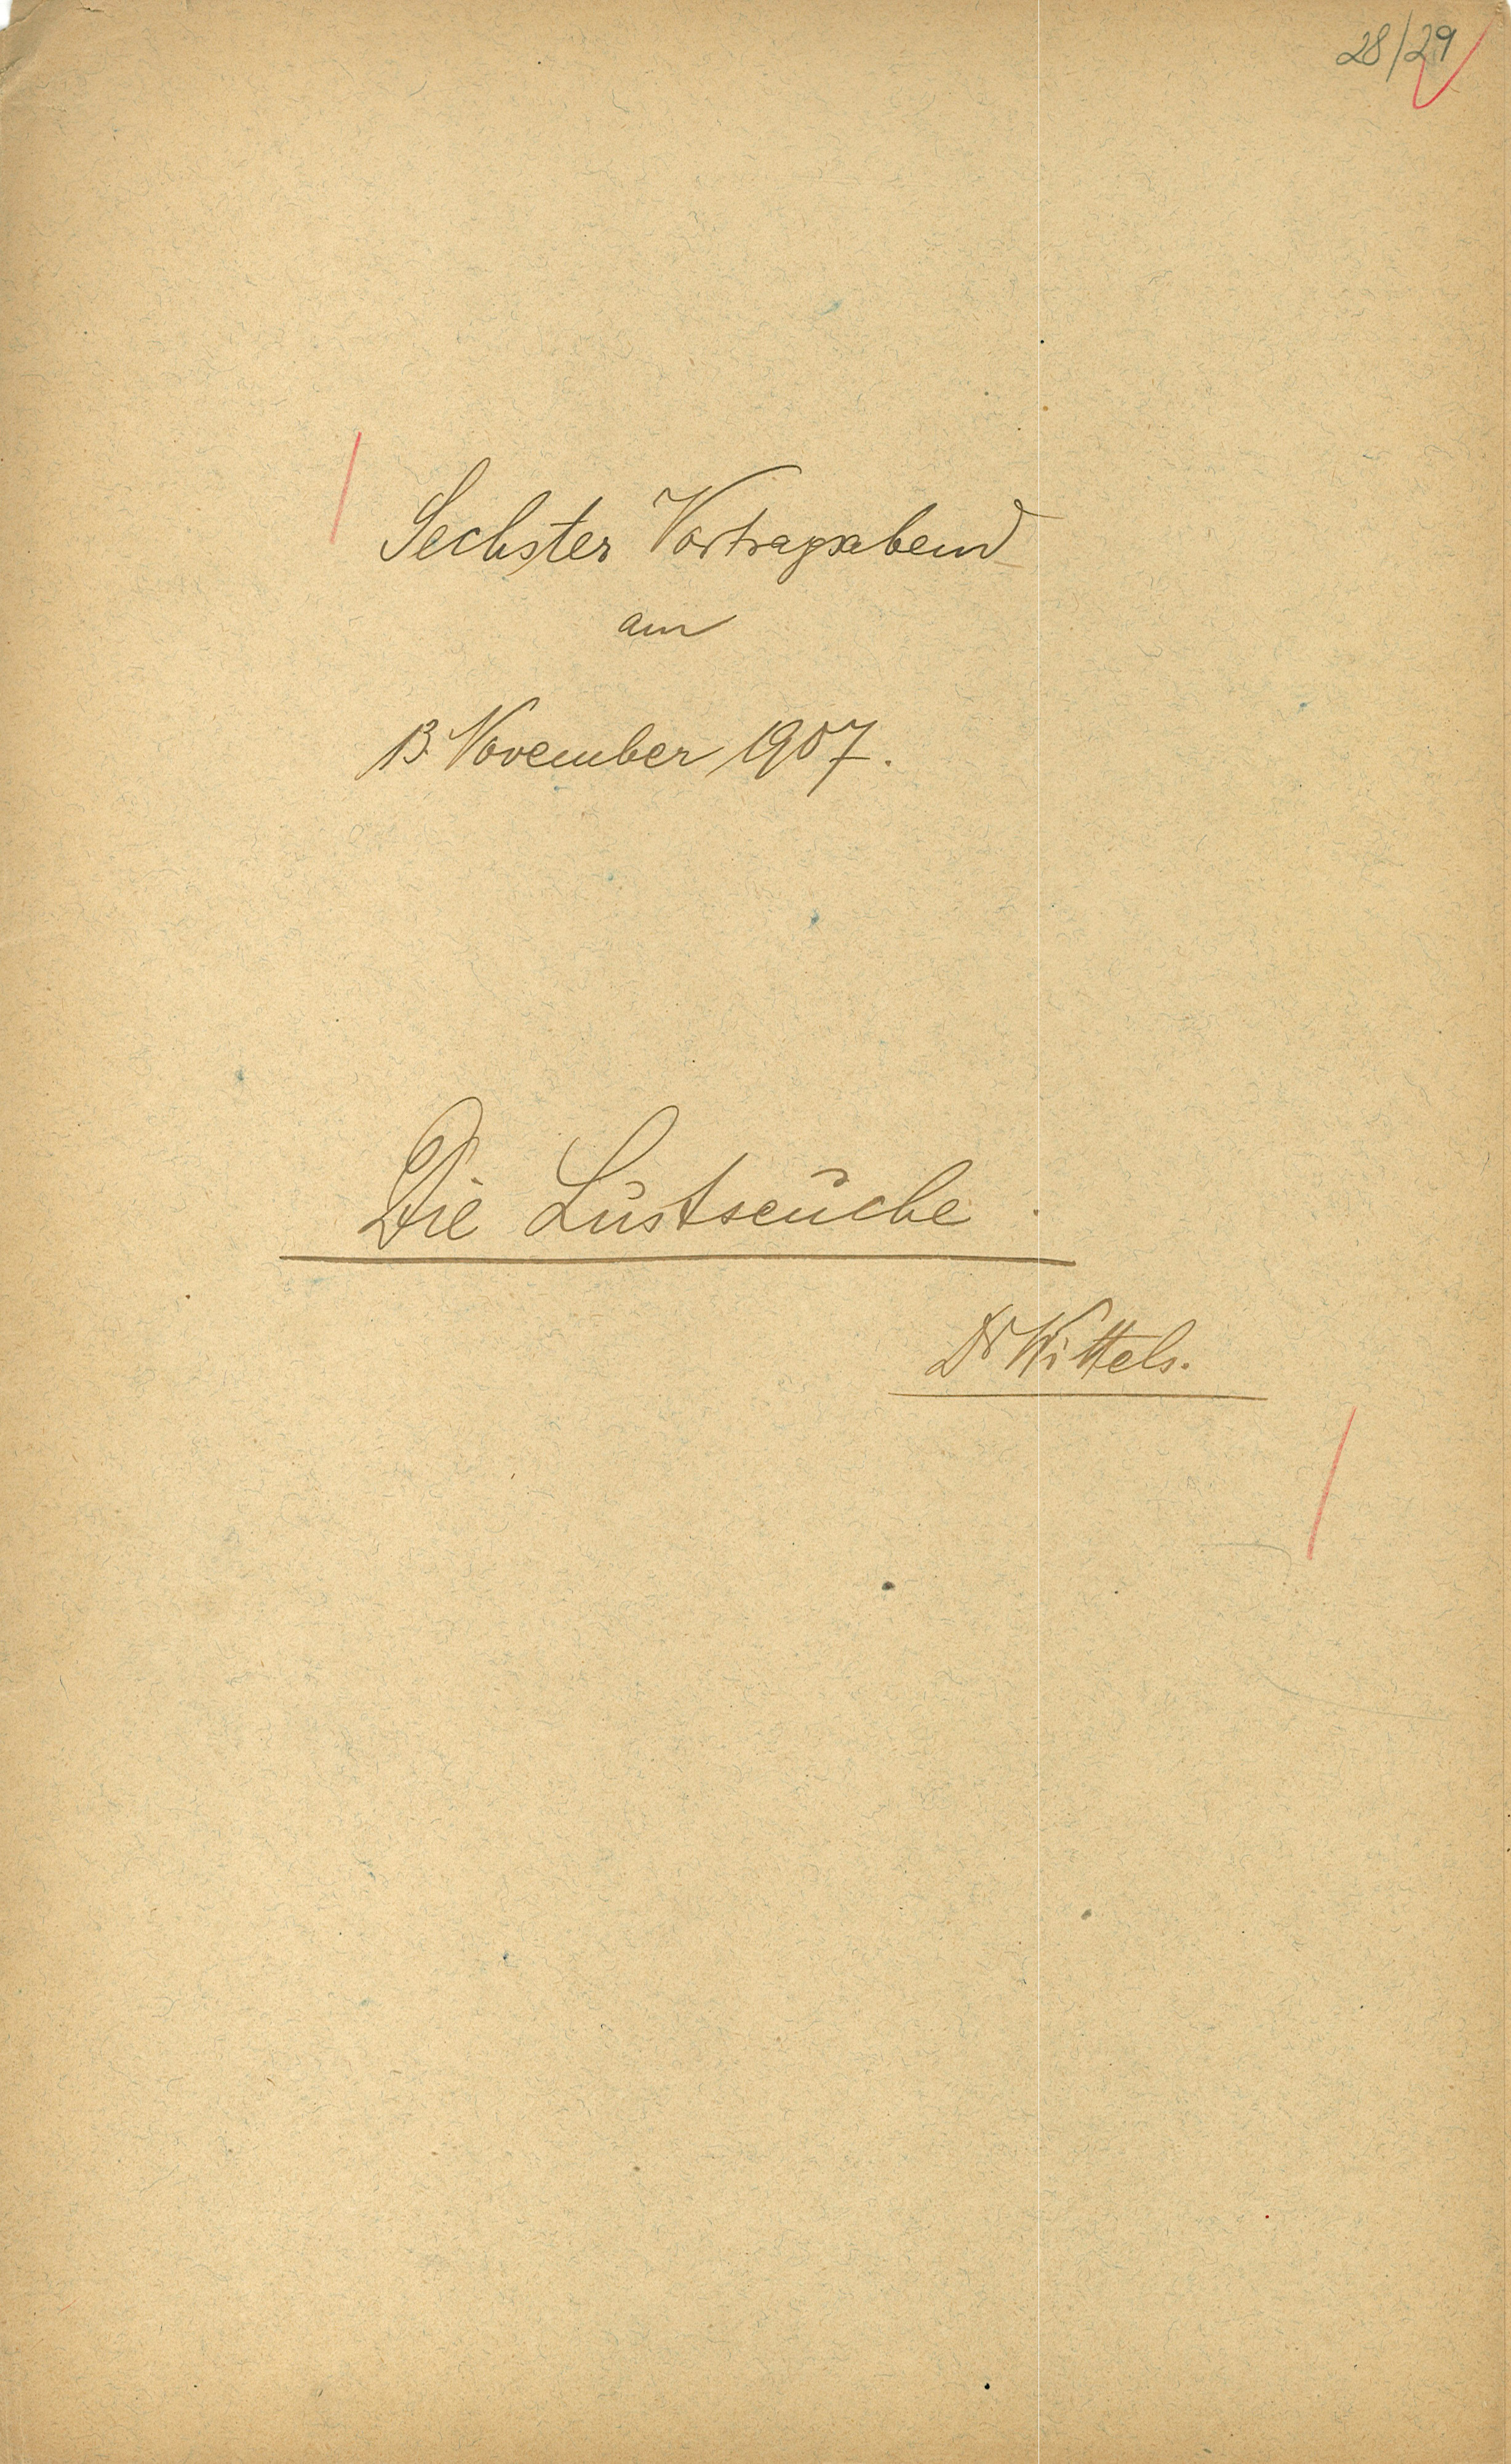 28/29
Sechster Vortragsabend
am
13. November 1907.
Die Lustseuche.
Dr Wittels.